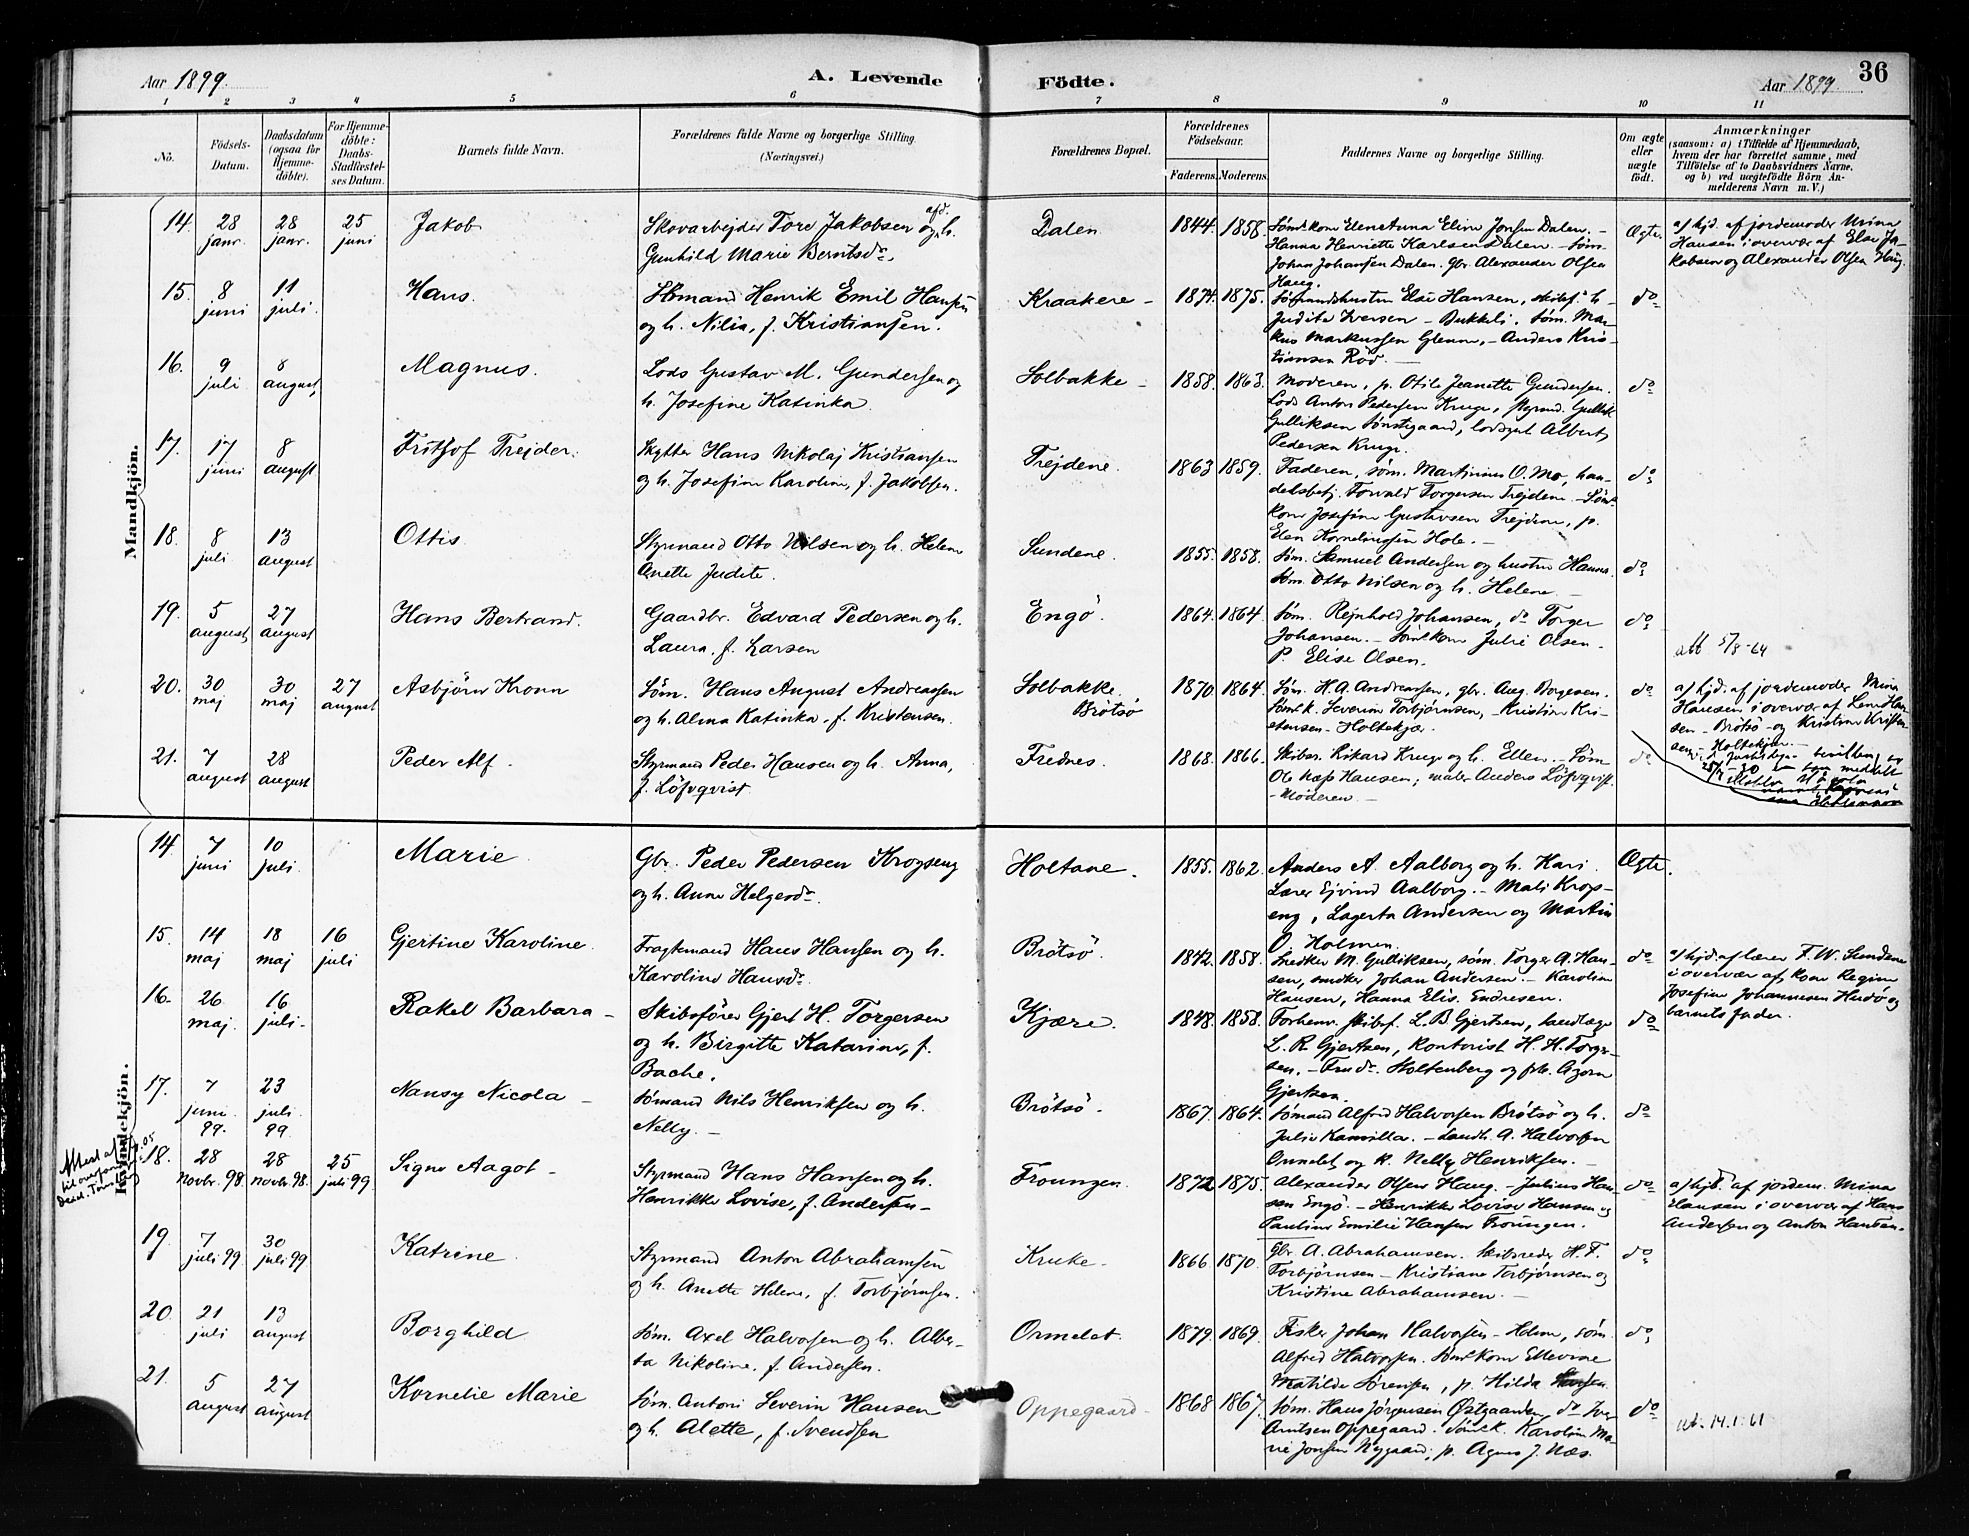 Aar 1899.
A. Levende
Födte.
Aar 1899.
36
1 2 3 4 5 6 7 8 9 10 11
No.
Födsels-
Datum.
Daabsdatum
(ogsaa for
Hjemme-
döbte).
For Hjemme-
döbte:
Daabs-
Stadfæstel-
ses Datum.
Barnets fulde Navn.
Forældrenes fulde Navne og borgerlige Stilling.
(Næringsvei.)
Forældrenes Bopæl.
Forældrenes
Födselsaar.
Faderens. Moderens.
Faddernes Navne og borgerlige Stilling.
Om ægte
eller
uægte
födt.
Anmærkninger
(saasom: a) i Tilfælde af Hjemmedaab,
hvem der har forrettet samme, med
Tilföielse af to Daabsvidners Navne,
og b) ved uægtefödte Börn An-
melderens Navn m. V.)
Mandkjön.
14. 28 janr. 28 janr. 25 juni
Jakob
Skovarbejder Tore Jakobsen og afd. h.
Gunhild Marie Berntsdr.
Dalen
1844. 1858.
Hanna Henriette Karlsen Dalen. – Søm.
Johan Johansen Dalen. Gbr. Alexander Olsen
Haug.
Ægte.
a) hjd. af jordemoder Mina
Hansen i overvær af Else Ja-
kobsen og Alexander Olsen Haug.
15. 8 juni 11 juli.
Hans.
Sömand Henrik Emil Hansen
og h. Nilia, f. Kristiansen.
Kraakere –
1874. 1875.
Sömandshustru Else Hansen, skibsf. h
Judite Iversen – Bukkeli. Søm. Mar-
kus Markussen Glenne, – Anders Kris-
tiansen Röd. –
do
16. 9 juli 8 august,
Magnus.
Lods Gustav M. Gundersen og
h. Josefine Katinka.
Solbakke –
1858. 1863.
Moderen, p. Otile Jeanette Gundersen.
Lods Anton Pedersen Kruge, styrmd. Gullik
Gulliksen Sønstegaard, lodsgut Albert
Pedersen Kruge.
do
17. 17 juni 8 august
Frithjof Trejder.
Skytter Hans Nikolaj Kristiansen
og h. Josefine Karoline, f. Jakobsen.
Trejdene.
1863 1859.
Faderen, søm. Martinius O. Mo, han-
delsbetj. Torvald Torgersen Trejdene – Sømk.
kone Josefine Gustavsen Trejdene, p.
Elen Korneliussen Hole. –
do
18. 8 juli 13 august
Ottis.
Styrmand Otto Nilsen og h. Helene
Anette Judite.
Sundene.
1855. 1858.
Søm. Samuel Andersen og hustru Hanna.
Søm. Otto Nilsen og h. Helene. –
do
19. 5 august, 27 august
Hans Bertrand.
Gaardbr. Edvard Pedersen og h.
Laura, f. Larsen
Engö.
1864. 1864.
Søm. Rejnhold Johansen, do Torger
Johansen. – Sømk. kone Julie Olsen.
P. Elise Olsen.
do
att 5/8-64
20. 30 maj 30 maj 27 august
Asbjörn Kronn
Søm. Hans August Andreassen
og h. Alma Katinka, f. Kristensen.
Solbakke.
Brötsö
1870. 1864.
Søm. H. A. Andreassen, gbr. Aug. Borgesen.
Sømk. Severine Torbjørnsen, – Kristine Kri-
stensen – Holtekjær.
do
a) hjd. af jordemoder Mina
Hansen i overvær af Lena Han-
sen – Brötsö – og Kristine Kristen-
sen – Holtekjær. –
21. 7 august 28 august
Peder Alf.
Styrmand Peder Hansen og h. Anna,
f. Löfvqvist.
Frednes.
1868. 1866.
Skibsr. Rikard Kruge og h. Ellen. – Søm.
Ole Næs Hansen; maler Anders Löfvqvist.
– Moderen. –
do
Kvindekjön.
14. 7 juni 10 juli.
Marie
Gbr. Peder Pedersen Krogseng
og h. Anne Helgesdr.
Holtane.
1855. 1862.
Anders A. Aalborg og h. Kari.
Lærer Ejvind Aalborg. – Mali Krogs-
eng, Lagerta Andersen og Martin
O. Holmen.
Ægte.
15. 14 maj 18 maj 16 juli
Gjertine Karoline.
Fragtemand Hans Hansen og h.
Karoline Hansdr.
Brötsö.
1842. 1858.
Snedker M. Gulliksen, søm. Torger A. Han-
sen, smdkr Johan Andersen. – Karoline
Hansen, Hanna Elis. Endresen.
do
a) hjd. af lærer F. W. Sundene
i overvær af, kone Regine
Josefine Johannesen Husö og
barnets fader.
16. 26 maj. 16 juli.
Rakel Barbara –
Skibsförer Gjert H. Torgersen
og h. Birgitte Katarine, f.
Bache.
Kjære.
1848. 1858.
Forhenv. skibsf. L. B. Gjertsen, tandlæge
L. R. Gjertsen, kontorist H. H. Torger-
sen. – Frud. Stoltenberg og frk. Agorn
Gjertsen.
do
17. 7 juni. 99. 23 juli 99
Nansy Nicola –
Sømand Nils Henriksen og h.
Nelly. –
Brötsö.
1867. 1864.
Sømand Alfred Halvorsen Brötsö og h.
Julie Kamilla. – Landh. A. Halvorsen
Ormelet og k. Nelly Henriksen. –
do
18. 28 novbr. 98. 28 novbr. 98. 25 juli 99.
Signe Aagot –
Styrmand Hans Hansen og h.
Henrikke Lovise, f. Andersen –
Froungen.
1872 1875.
Alexander Olsen Haug. – Julius Han-
sen Engö. – Henrikke Lovise Hansen og
Pauline Emilie Hansen Froungen.
do
a) hjd. af jordem. Mina
Hansen i overvær af Hans
Andersen og Anton Hansen.
19. 7 juli 99. 30 juli 99
Katrine
Styrmand Anton Abrahamsen
og h. Anette Helene, f. Torbjörnsen.
Kruke.
1866 1870.
Gbr. A. Abrahamsen. Skibsreder H. F.
Torbjörnsen – Kristiane Torbjørnsen og
Kristine Abrahamsen. –
do
20. 21 juli 13 august
Borghild
Søm. Axel Halvorsen og h. Alber-
ta Nikoline, f. Andersen.
Ormelet.
1879. 1869.
Fisker Johan Halvorsen – Holme, søm.
Alfred Halvorsen. Sømk. kone Ellevine
Matilde Sørensen, p. Hilda
do
21. 5 august 27 august
Kornelie Marie
Søm. Antoni Severin Hansen
og h. Alette, f. Svendsen
Oppegaard –
1868 1867.
Søm. Hans Jörgensen Østgaarden, do Iver
Arntsen Oppegaard. Sømk. Karoline Ma-
rie Jonsen Nygaard, p. Agnes J. Næs.
do
at. 14.1.61